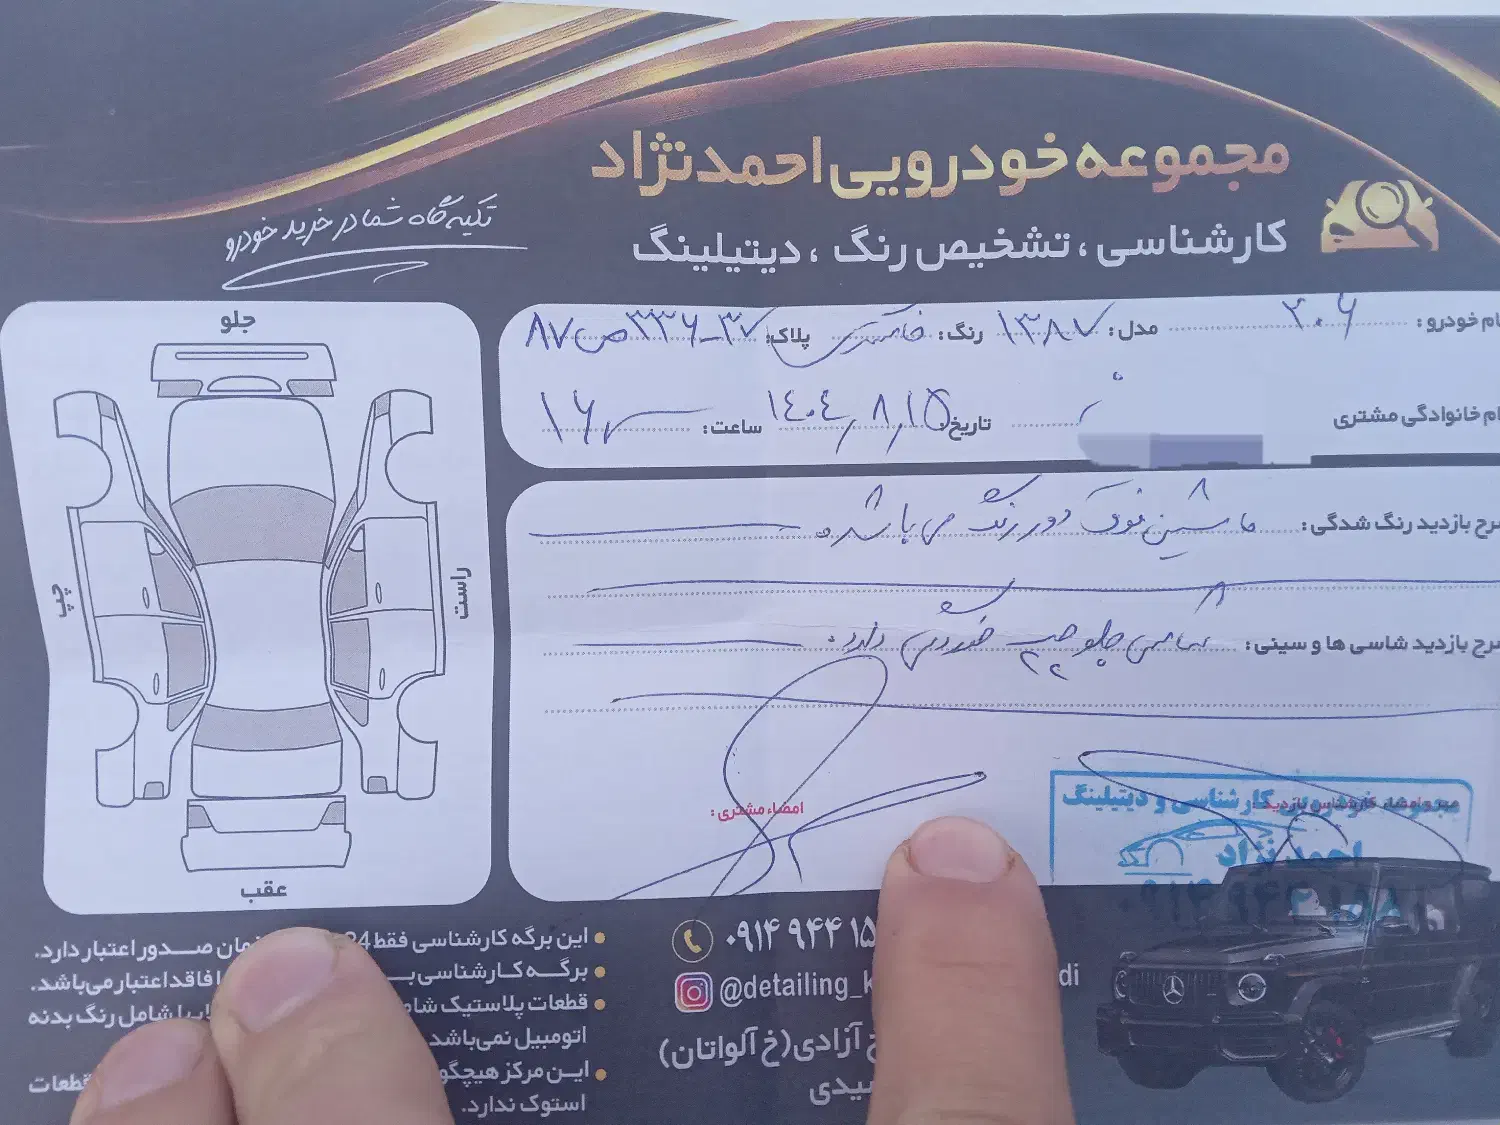 مجموعه خودرویی احمدنژاد
کارشناسی ، تشخیص رنگ ، دیتیلینگ
تکیه‌گاه شما در خرید خودرو
ام خودرو : ۲۰۶ مدل: ۱۳۸۷ رنگ: خاکستری پلاک: ۳۷-۳۳۶ص۸۷
ام خانوادگی مشتری تاریخ: ۱۴۰۴/۸/۱۵ ساعت: ۱۶
رح بازدید رنگ شدگی: ماشین فوق دور رنگ می باشد.
رح بازدید شاسی ها و سینی: شاسی جلو چپ خوردگی دارد.
امضاء مشتری:
مهر و امضاء کارشناس بازدید:
مجموعه خودرویی کارشناسی و دیتیلینگ
احمدنژاد
جلو
چپ
راست
عقب
این برگه کارشناسی فقط 24 زمان صدور اعتبار دارد.
برگه کارشناسی فاقد اعتبار می‌باشد.
قطعات پلاستیک شامل رنگ بدنه
اتومبیل نمی‌باشد
این مرکز قطعات
استوک ندارد.
۰۹۱۴ ۹۴۴ ۱۵
@detailing_k di
آزادی(خ آلواتان)